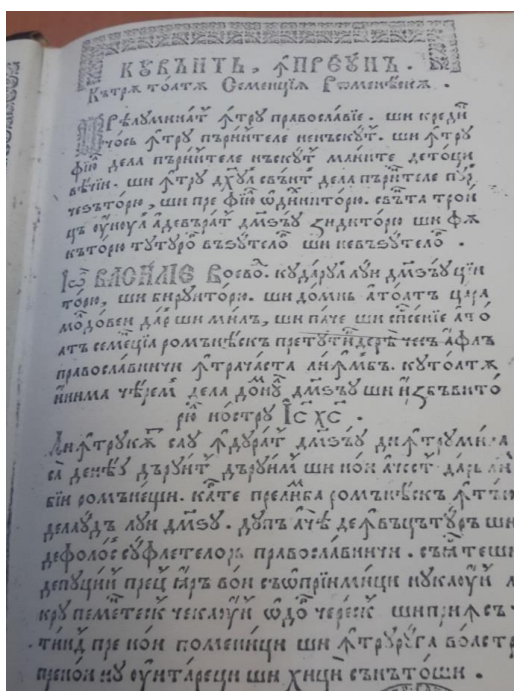 КꙋВѪНТЬ, ꙞПРЕꙊНЪ.
Кътрѫ тоатѫ Семенцїѧ Рꙍмѣнѣскѫ.
Прѣлꙋминат ꙟтрꙋ православїе. ши креди
чоѡсь ꙟтрꙋ пърине́теле ненъскꙋт. ши ꙟтрꙋ
фїю дела пъринтеле нъскꙋт маините детоци
вѣчїи. ши ꙟтрꙋ дхꙋл свѣнт дела пъринтеле пꙋр
чезъторю, ши пре фїю ѡдихниторю. свѣнта трои
цъ ꙋнꙋл адевърат дꙋмнезъꙋ зидиторю ши фъ
къторю тꙋтꙋрѡ възꙋтелѡ ши невъзꙋтелѡ.
Іѡ ВАСИЛІЕ Воевод. кꙋдарꙋл лꙋи дмзъꙋ ции
торю, ши бирꙋиторю. ши домнь а тоатъ цара
молдовеи дар ши милъ, ши паче ши спсенїе а то
атъ семенцїа ромънѣскъ претꙋтиндерѣ чесъ афлъ
православничи ꙟтрачаста лимбъ. кꙋтоатѫ
инима чѣрем дела домнꙋл дмзъꙋ ши избъвито
рю нострꙋ Іс хс.
ꙟдꙋрат дмзъꙋ
дърꙋит дърꙋим ши нои ачест дарь лим
бїи ромънещи. карте прелимба ромънѣскъ
делаꙋдъ лꙋи дмзꙋ. дꙋпъ ачѣ деꙟвъцътꙋръ ши
дефолос сꙋфлетелорь православничи. съ
депꙋцин прец ꙗръ вои съѡприимици нꙋкаꙋн
крꙋ пементеск чекаꙋн ѡдор череск
тинд пре нои помeници ши ꙟтрꙋрꙋга волст
пренои нꙋ ꙋитареци ши хиць сънътоши.